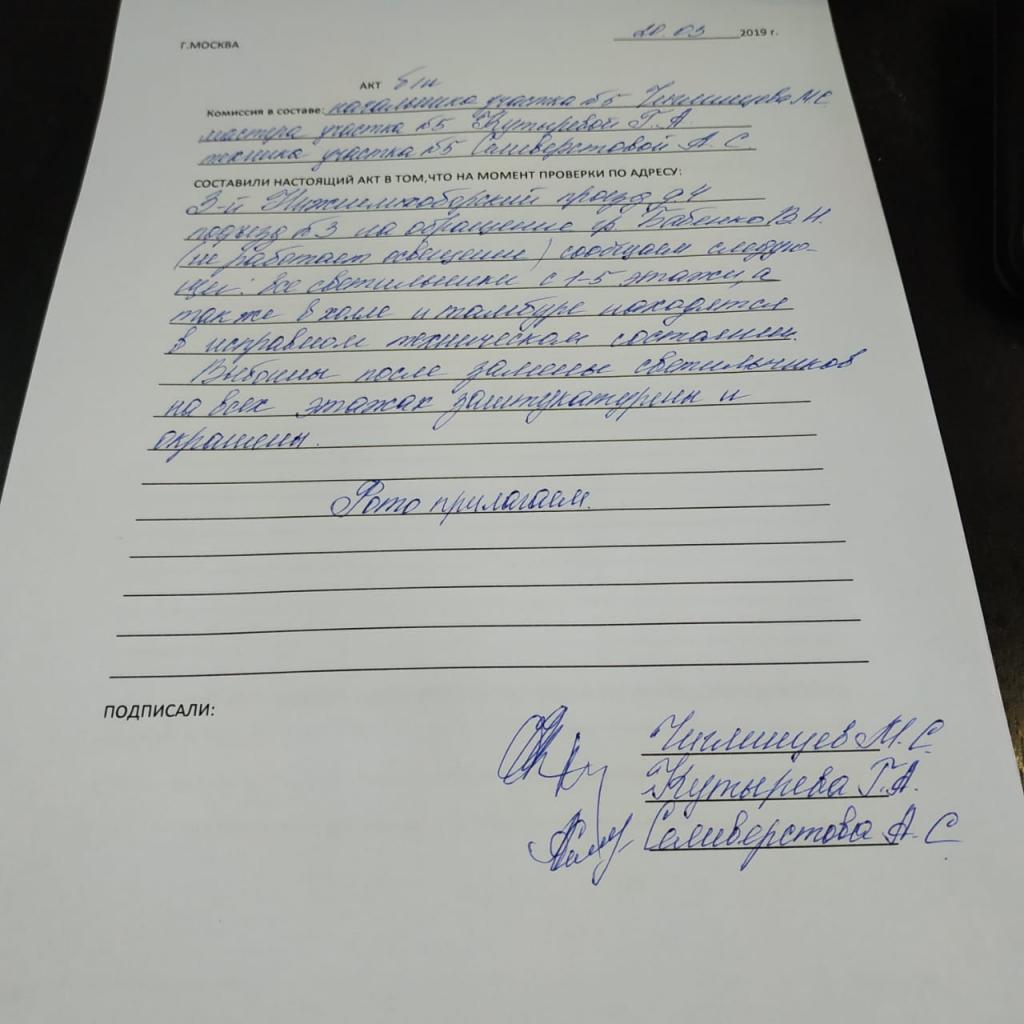 Г.МОСКВА
20.03 2019 г.
АКТ б/н
Комиссия в составе: начальника участка №5 Чиглинцева М.С.
мастера участка №5 Кутыревой Г.А.
техника участка №5 Селиверстовой А.С.
СОСТАВИЛИ НАСТОЯЩИЙ АКТ В ТОМ,ЧТО НА МОМЕНТ ПРОВЕРКИ ПО АДРЕСУ:
3-й Нижнелихоборский проезд д.4
подъезд №3 на обращение гр. Бабенко В.Н.
(не работает освещение) сообщаем следую-
щее: Все светильники с 1-5 этажи, а
также в холле и тамбуре находятся
в исправном техническом состоянии.
Выбоины после замены светильников
на всех этажах заштукатурены и
окрашены.
Фото прилагаем.
ПОДПИСАЛИ:
Чиглинцев М.С.
Кутырева Г.А.
Селиверстова А.С